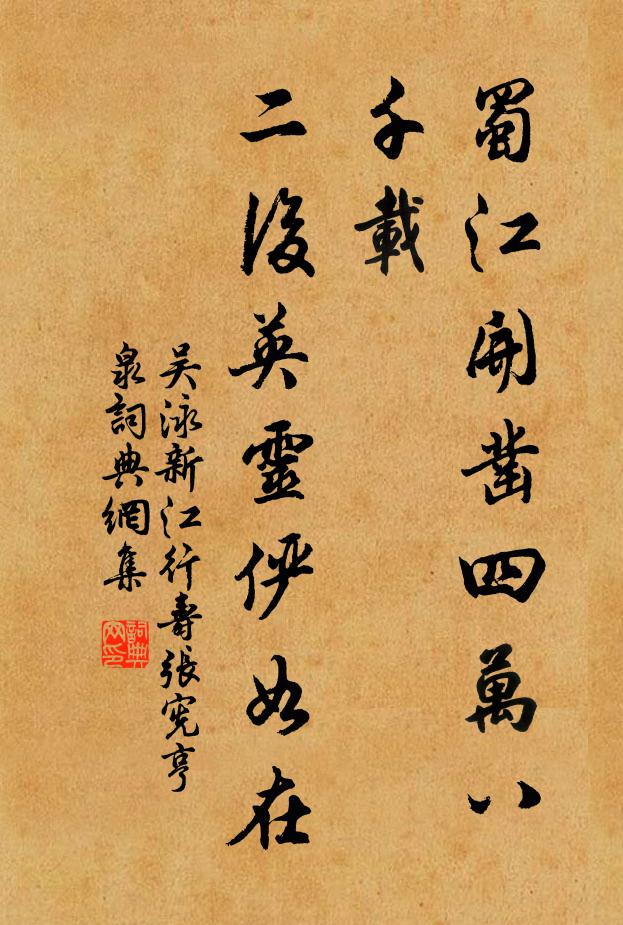 蜀江開凿四萬八
千載
二後英靈俨如在
吴泳新江行壽張憲亨
泉詞典網集
詞典
网印